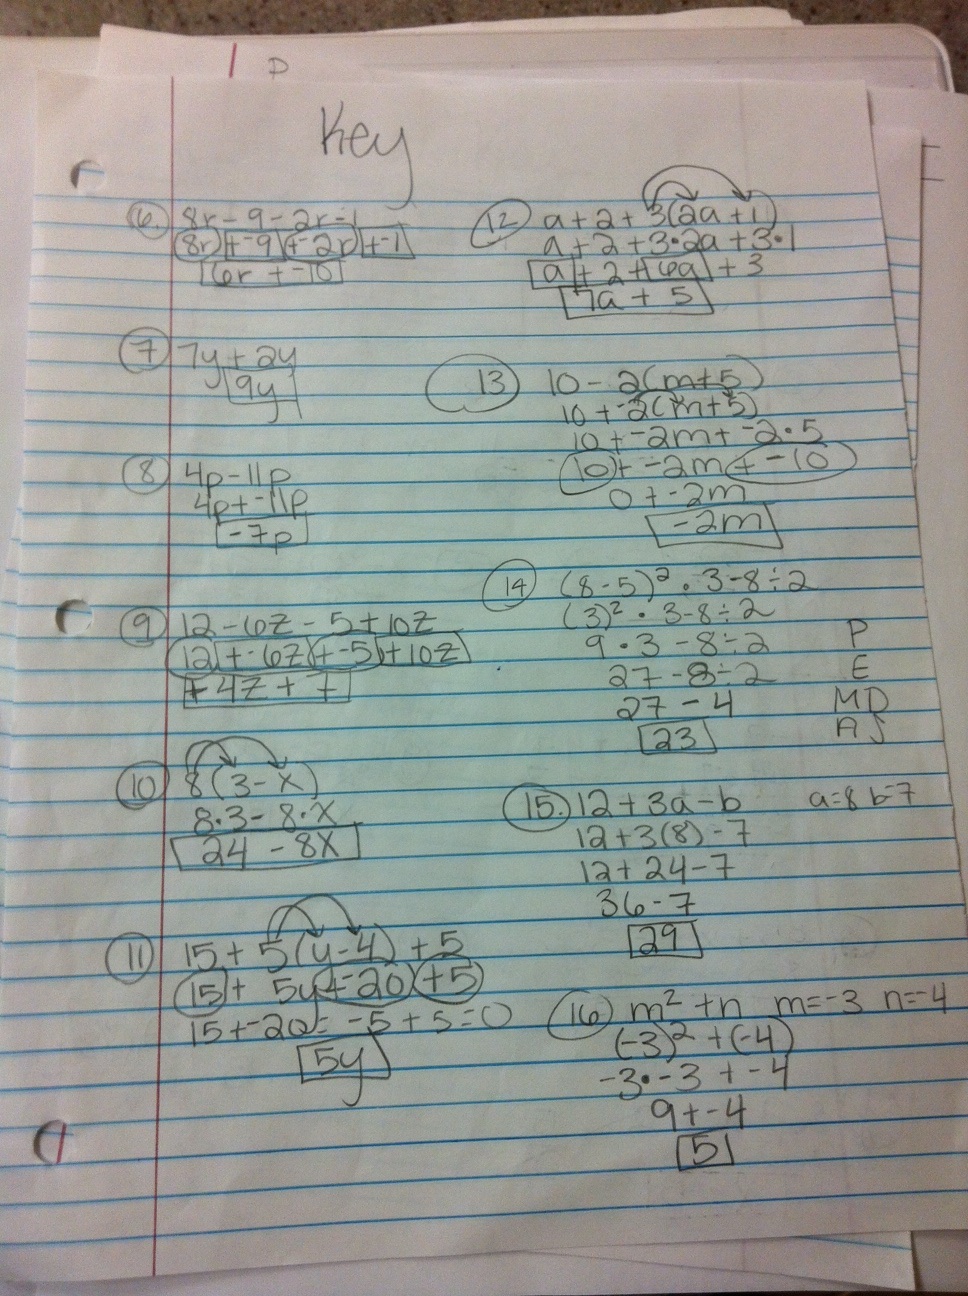 D
Key
6. 8r - 9 - 2r - 1
8r + -9 + -2r + -1
6r + -10
7 7y + 2y
9y
8 4p - 11p
4p + -11p
-7p
9 12 - 6z - 5 + 10z
12 + -6z + -5 + 10z
+4z + 7
10 8(3 - x)
8·3 - 8·x
24 - 8x
11 15 + 5(y - 4) + 5
15 + 5y + -20 + 5
15 + -20 = -5 + 5 = 0
5y
12 a + 2 + 3(2a + 1)
a + 2 + 3·2a + 3·1
a + 2 + 6a + 3
7a + 5
13 10 - 2(m+5)
10 + -2(m+5)
10 + -2m + -2·5
10 + -2m + -10
0 + -2m
-2m
14 (8-5)² · 3 - 8 ÷ 2
(3)² · 3 - 8 ÷ 2
9 · 3 - 8 ÷ 2
27 - 8 ÷ 2
27 - 4
23
P
E
MD
AS
15. 12 + 3a - b a=8 b=7
12 + 3(8) - 7
12 + 24 - 7
36 - 7
29
16 m² + n m=-3 n=-4
(-3)² + (-4)
-3·-3 + -4
9 + -4
5